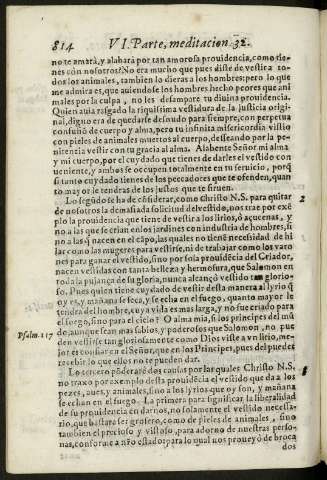 814 VI. Parte, meditacion 32.
no te amarà, y alabarà por tan amorosa prouidencia, como tie-
nes con nosotros? No era mucho que pues diste de vestir a to-
dos los animales, tambien lo dieras a los hombres: pero lo que
me admira es, que auiendo los hombres hecho peores que ani
males por la culpa, no les desampare tu diuina prouidencia.
Quien auia rasgado la riquissima vestidura de la justicia origi-
nal, digno era de quedarse desnudo para siempre, con perpetua
confusió de cuerpo y alma, pero tu infinita misericordia vistio
con pieles de animales muertos al cuerpo, desseando por la pe-
nitencia vestir con tu gracia al alma. Alabente Señor mi alma
y mi cuerpo, por el cuydado que tienes de darles el vestido con
ueniente, y ambas se ocupen totalmente en tu seruicio, porq̃
si tanto cuydado tienes de los peccadores que te ofenden, quan
to mayor le tendras de los justos que te siruen.
Lo segũdo se ha de cósiderar, como Christo N.S. para quitar
de nosotros la demasiada solicitud del vestido, nos trae por exẽ
plo la prouidencia que tiene de vestir a los lirios, ó açucenas, y
no a las que se crian en los jardines con industria de hombres, si
no a las q̃ nacen en el cãpo, las quales no tienẽ necessidad de hi
lar como las mugeres para vestirse, ni de trabajar como los varo
nes para ganar el vestido, sino por sola prouidẽcia del Criador,
nacen vestidas con tanta belleza y hermosura, que Salomon en
toda la pujança de su gloria, nunca alcançò vestido tan glorio-
so. Pues quien tiene cuydado de vestir desta manera al lyrio q̃
oy es, y mañana se seca, y se echa en el fuego, quanto mayor le
tendra del hombre, cuya vida es mas larga, y no fue criado para
el fuego, sino para el cielo? O alma mia, si los principes del mũ
Psalm. 117 do aunque sean mas sabios, y poderosos que Salomon, no pue
den vestirse tan gloriosamente como Dios viste a vn lirio, me-
jor es confiar en el Señor, que en los Principes, pues del puedes
recebir lo que ellos no te pueden dar.
Lo tercero põderarè dos causas por las quales Christo N.S.
no traxo por exemplo desta prouidẽcia el vestido que da a los
pezes, aues, y animales, sino a los lyrios que oy son, y mañana
se echan en el fuego. La primera para significar la liberalidad
de su prouidencia en darnos, no solamente el vestido necessa-
rio, que bastara ser grosero, como de pieles de animales, sino
tambien el precioso y vistoso, para adorno de nuestras perso-
nas, conforme a nřo estado: para lo qual nos proueyò de broca
dos